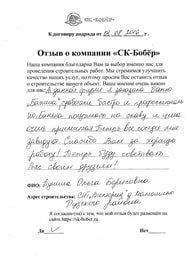 «СК-БОБЁР»
К договору подряда от 13.05.2016 г.
Отзыв о компании «СК-Бобёр»
Наша компания благодарна Вам за выбор именно нас для
проведения строительных работ. Мы стремимся улучшить
качество наших услуг, поэтому просим Вас оставить отзыв
о строительстве вашего объект. Ваше мнение очень важно
для нас. В данной фирме я заказала баню
сработали быстро и профессионально
Баня на славу, и мне
очень Теперь все соседи мне
завидуют. Спасибо Вам за хорошую
работу! Теперь буду советовать
Вас своим друзьям!
ФИО: Ольга Борисовна
Адрес строительства:
Рузского района
Я согласен(на) с тем, что мой отзыв будет размещён на
сайте https://sk-bober.ru.
Да ✓ Нет